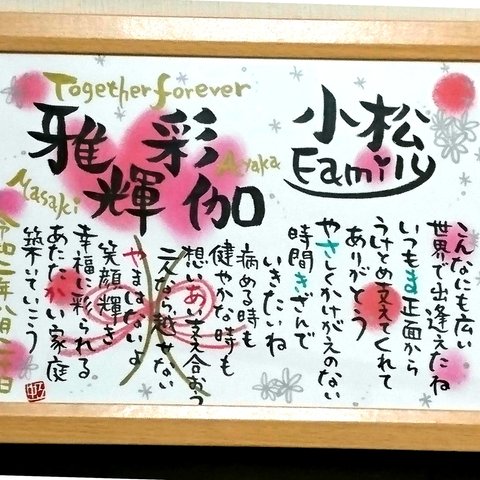 Together forever
小松
Family
雅輝
Masaki
彩伽
Ayaka
こんなにも広い
世界で出逢えたね
いつもま正面から
うけとめ支えてくれて
ありがとう
やさしくかけがえのない
時間きざんで
いきたいね
病める時も
健やかな時も
想いあい支え合おう
二人なら越せない
やまはないよ
笑顔輝き
幸福に彩られる
あたたかい家庭
築いていこう
令和二年八月二十日